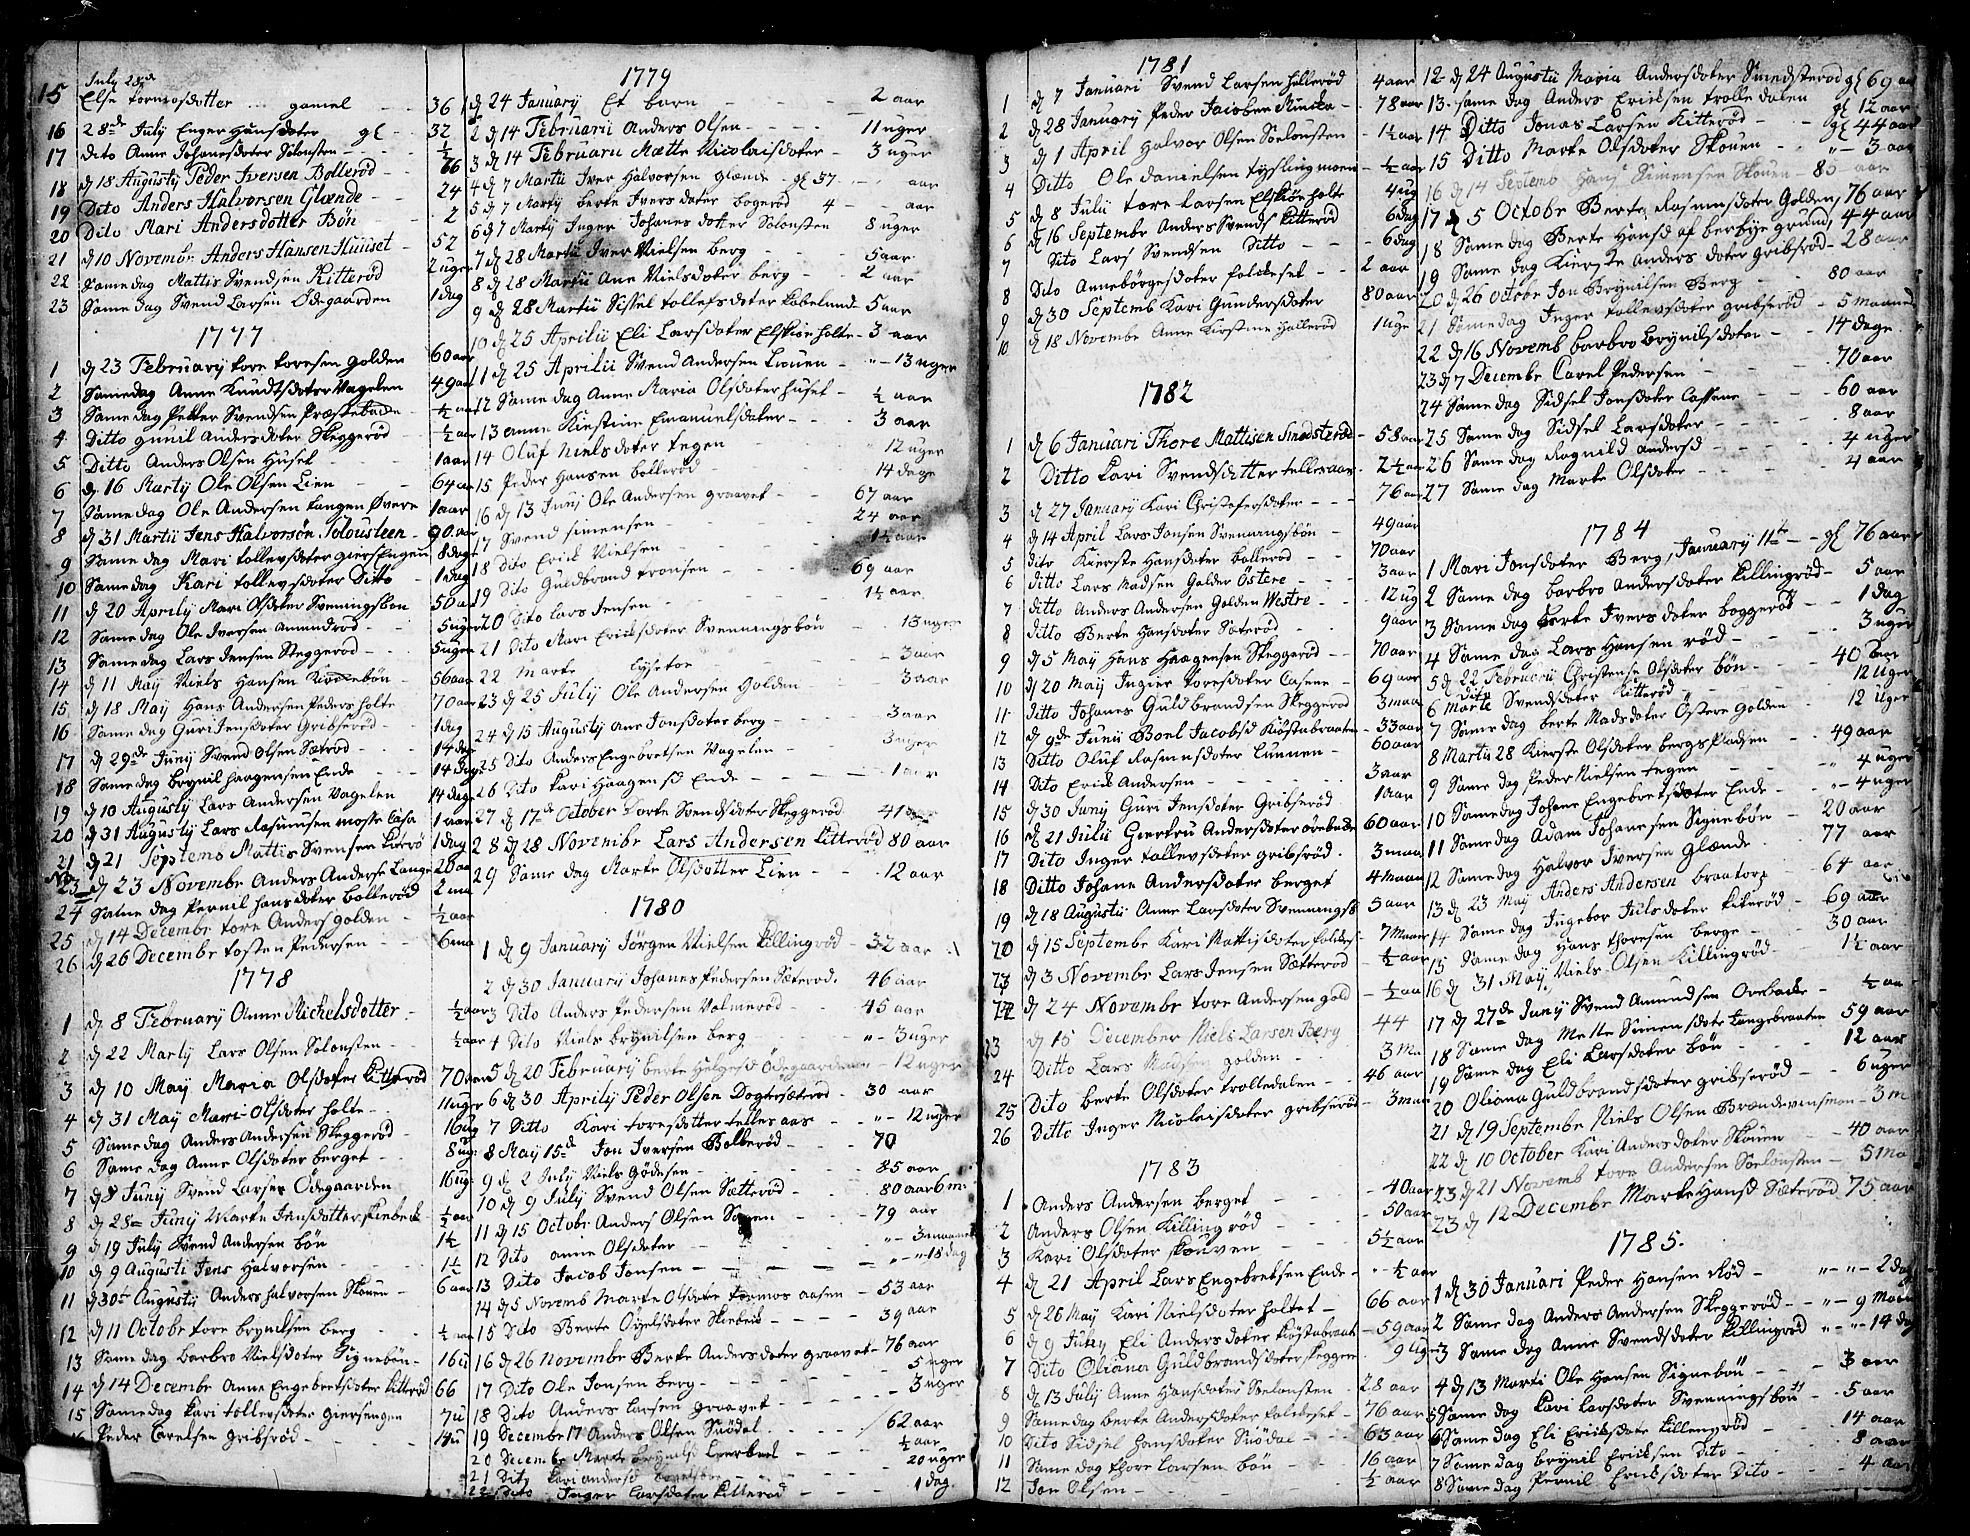 July 28d
15 Else tormosdotter ... gamel 36
16 28de July Enger Hansdoter gl 32
17 Dito Anne Johanesdoter Solonsten 1/2
18 d 18 Augusty Peder Iversen Bollerød 76
19 Dito Anders Halvorsen Glænde 24
20 Dito Mari Andersdotter Bøn 2
21 d 10 Novembr Anders Hansen Huuset 52
22 Samedag Mattis Svendsen Kitterød 2 uger
23 Samedag Svend Larsen Ødegaarden 1 dag
1777
1 d 23 February tore toresen golden 60 aar
2 Samedag Anne Knudtsdoter Vagelen 49 aar
3 Samedag Petter Svendsen Præstebacken 1/2 aar
4 Ditto gunil Andersdoter Skeggerød 1/2 aar
5 Ditto Anders Olsen Huset 1 aar
6 d 16 Marty Ole Olsen Lien 64 aar
7 Samedag Ole Andersen tangen Øvere 1 aar
8 d 31 Martii Jens Halvorsøn Solousteen 90 aar
9 Samedag Mari tollevsdoter giersengen 8 dage
10 Samedag Kari tollevsdoter Ditto 1 dag
11 d 20 Aprily Mari Olsdoter Sveningsbøn 50 aar
12 Samedag Ole Iversen Amundrød 5 uger
13 Samedag Lars Jensen Skeggerød 5 uger
14 d 11 May Niels Hansen Korsebøn 56 aar
15 d 18 May Hans Andersen Pedersholte 70 aar
16 Samedag Guri Jensdoter Gribserød 1 dag
17 d 29de Juny Svend Olsen Sætrød 14 dage
18 Samedag brynil haagensen Ende 14 dage
19 d 10 Augusty Lars Andersen Vagelen 14 dage
20 d 31 Augusty Lars Rasmusen mosse Casa 1 aar
21 d 21 Septemb Mattis Svensen Kiterø 1 dag
23 d 23 Novembr Anders Anderse Lange 20 aar
24 Samedag Pernil hansdoter bollerød 2 ma
25 d 14 Decembr tore Anders golden 1/2 aar
26 d 26 Decembr tosten Pedersen 6 ma
1778
1 d 8 February Anne Michelsdotter 1/2 aar
2 d 22 Marty Lars Olsen Solonsten 1/2 aar
3 d 10 May Maria Olsdoter Kitterød 70 aar
4 d 31 May Mari Olsdoter holte 11 uger
5 Samedag Anders Andersen Skeggerød 16 ug
6 Samedag Anne Olsdoter berget 8 ug
7 d 8 Juny Svend Larsen Ødegaarden 16 ug
8 d 28 Juny Marte Jensdotter skiebeck 1/2 aar
9 d 19 July Svend Andersen bøn 1 1/2
10 d 9 Augusti Jens Halvorsen 1 1/2
11 d 30 Augustii Anders halvorsen Skouen 6 aar
12 d 11 Octobr tore brynilsen berg 1/2 aar
13 Samedag Barbro Nielsdoter Signebøn 16 u
14 d 14 Decembr Anne Engebretsdoter Kitterød 66
15 Samedag Kari tollevsdoter giersengen 7 u
Peder Carelsen Gribsrød 14 u
1779
1 d 24 January Et barn 2 aar
2 d 14 Februarii Anders Olsen 11 uger
3 d 14 Februaru Mætte Nicolaisdoter 3 uger
4 d 7 Martii Iver Halvorsen glænde gl 57 aar
5 d 7 Marty berte Iversdater bogerød 4 aar
6 d 7 Marty Inger Johanesdotter Solonsten 8 uger
7 d 28 Martii Iver Nielsen berg 5 aar
8 d 28 Martii Ane Nielsdoter berg 2 aar
9 d 28 Martii Sissel tollefsdoter Kabelund 5 aar
10 d 25 Aprilii Eli Larsdoter Elskieholte 3 aar
11 d 25 Aprilii Svend Andersen Louen 13 uger
12 Samedag Anne Maria Olsdoter huset 1/2 aar
13 Anne Kirstine Emanuelsdoter 3 aar
14 Oluf Nielsdoter tegen 12 uger
15 Peder Hansen bollerød 14 dage
16 d 13 Juny Ole Andersen graavet 67 aar
17 Svend simensen 24 aar
18 Dito Erick Nielsen 1 1/2 aar
19 Dito Guldbrand tronsen 69 aar
20 Dito Lars Jensen 1 1/2 aar
21 Dito Mari Ericksdoter Svenningsbøn 13 uger
22 Marte Lysetoe 3 aar
23 d 25 July Ole Andersen Golden 3 aar
24 d 15 Augusty Ane Jonsdoter berg 3 aar
25 Dito Anders Engebretsen Vagelen 3 uger
26 Dito Kari Haagens d Ende 1 aar
27 d 17de October Dorte Svendsdoter Skeggerød 41 aar
28 d 28 Novembr Lars Andersen Kitterød 80 aar
29 Same dag Marte Olsdotter Lien 12 aar
1780
1 d 9 January Jørgen Nielsen Killingrød 32 aar
2 d 30 January Johanes Pedersen Sæterød 46 aar
3 Dito Anders Pedersen Volmerød 45 aar
4 Dito Niels brynilsen berg 3 uger
5 d 20 February berte Helgesd Ödegaarden 12 uger
6 d 30 Aprily Peder Olsen Dogtersæterød 30 aar
7 Ditto Kari toresdotter tellesaas 12 uger
8 May 15de Jon Iversen Bollerød 70
9 d 2 July Niels Gødesen 85 aar
10 d 9 July Svend Olsen Sætterød 80 aar 6 m
11 d 15 Octobr Anders Olsen 79 aar
12 Dito anne Olsdoter 3 maaned
13 Dito Jacob Jonsen 18 dag
14 d 5 Novemb Marte Olsdoter tormosaasen 53 aar
15 Dito Berte Oyelsdoter Skiebeck 39 aar
16 d 26 Novembr Berte Andersdoter graavet 76 aar
17 Dito Ole Jonsen berg 5 uger
18 Dito Anders Larsen graavet 3 uger
19 December 17 Anders Olsen Snödal 62 aar
20 Decembr Marte brynils 1/2 aar
21 Dito Kari andersd 20 uger
22 Dito Inger Larsdoter Kitterød 1 dag
1781
1 d 7 Januari Svend Larsen Hallerød 4 aar
2 d 28 January Peder Jacobsen 78 aar
3 d 1 April Halvor Olsen Soelonsten 1 1/2 aar
4 Ditto Ole danielsen tyslingmoen 1/2 aar
5 d 8 Julii tore Larsen Elskiøholte 4 ug
6 d 16 Septembr Anders Svends Kitterød 6 dag
7 Dito Lars Svendsen Ditto 6 dag
8 Dito Annebörgesdoter foldeset 2 aar
9 d 30 Septemb Kari Gundersdoter 80 aar
10 d 18 Novembr Anne Kirstine Hallerød 1 uge
1782
1 d 6 Januari Thore Mattisen Smedsterød 58 aar
2 Ditto Kari Svendsdotter tellesaas 2 1/2 aar
3 d 27 January Kari Christofersdoter 76 aar
4 d 14 April Lars Jonsen Svenningsbøn 49 aar
5 dito Kierste Hansdoter bollerød 70 aar
6 ditto Lars Madsen Golden Östere 3 aar
7 ditto Anders Andersen Golden Westre 12 ug
8 ditto Berte Hansdoter Sæterød 9 aar
9 d 5 May Hans Haagensen Skeggerød 70 aar
10 d 20 May Ingier toresdoter Casene 69 aar
11 ditto Johanes Guldbrandsen Skeggerød 3 maa
12 d 9de Junii Boel Jacobsd Kiöstabraaten 33 aar
13 Ditto Oluf Rasmusdoter Lunnen 60 aar
14 Dito Erick Andersen 3 aar
15 d 30 Juny Guri Jensdoter Gribserød 1 aar
16 d 21 Julii Giertru Andersdoter örebecke 60 aar
17 Dito Inger tollevsdoter gribsrød 3 maa
18 Ditto Johane Andersdoter berget 4 maan
19 d 18 Augustii Anne Larsdoter Svenningsb 5 aar
20 d 15 Septembr Kari Mattisdoter foldes 7 maan
d 3 Novembr Lars Jensen Sætterød 1/2 aar
22 d 24 Novembr tore Andersen gold 1/2 aar
23 d 15 December Niels Larsen Berg 44
24 Ditto Lars Madsen golden 3 Ma
25 Dito berte Olsdoter trolledalen 46 aar
26 Ditto Inger Nicolaisdoter gribserød 3 maa
1783
1 Anders Andersen berget 40 aar
2 Anders Olsen Killingrød 50 aar
3 Kari Olsdoter skouven 5 1/2 aar
4 d 21 April Lars Engebretsen Ende 1/2 aar
5 d 26 May Kari Nielsdoter holtet 66 aar
6 d 9 July Eli Andersdoter Kiöstabraat 59 aar
7 Dito Oliana Guldbrandsdoter skeggerø 9 uge
8 d 13 July Anne Hansdoter Soelonsten 28 aar
9 Samedag berte Andersdoter foldeset 76 aar
10 Dito Sidsel Hansdoter Snödal 63 aar
11 Same dag thore Larsen bøn 16 aar
12 Jon Olsen 1/2 aar
12 d 24 Augustii Maria Andersdoter Smedsterød gl 69 aar
13 same dag Anders Ericksen trolledalen gl 12 aar
14 Ditto Jonas Larsen Kitterød gl 44 aar
15 Ditto Marte Olsdoter Skouen 3 aar
16 d 14 Septemb Hans Simensen Skouen 83 aar
17 d 5 Octobr Berte Rasmusdoter Golden 76 aar
18 Same dag Berte Hansd af berbye grund 44 aar
19 Same dag Kierste Anders doter gribsrød 28 aar
20 d 26 Octobr Jon Brynilsen Berg 80 aar
21 Samedag Inger tollevsdoter gribserød 5 maaned
22 d 16 Novemb barbro Brynilsdoter 14 dage
23 d 7 Decembr Carel Pedersen 70 aar
24 Samedag Sidsel Jonsdoter Cassene 60 aar
25 Same dag Sidsel Larsdoter 8 aar
26 Same dag Ragnild Andersd 4 uger
27 Same dag Marte Olsdoter 4 aar
1784
1 Mari Jonsdoter Berg, January 11te gl 76 aar
2 Same dag barbro Andersdoter Killingrød 5 aar
3 Samedag Berte Iversdoter boggerød 1 dag
4 Same dag Lars Hansen rød 3 uger
5 d 22 Februarii Christense Olsdoter bøn 40 aar
6 dito Marte Svendsdoter Kitterød 12 uger
7 Same dag berte Madsdoter Östere Golden 12 uger
8 Martii 28 Kierste Olsdoter bergs Pladsen 49 aar
9 Same dag Peder Nielsen tegen 4 uger
10 Samedag Johane Engebretsdoter Ende 4 uger
11 Samedag Adam Johanesen Signebøn 20 aar
12 Samedag Halvor Iversen Glænde 77 aar
13 d 23 May Anders Andersen braatorp 64 aar
14 Same dag Ingebor Julsdoter Kiterød 69 aar
15 Same dag Hans thoresen berge 30 aar
16 d 31 May Niels Olsen Killingrød 1 1/2 aar
17 d 27de Juny Svend Amundsen Orebacke 1/2 aa
18 Same dag Mette Simensdote Langebraaten 59 aar
19 Same dag Eli Larsdoter bøn 12 aar
20 Oliana Guldbrandsdoter gribserød 6 uger
21 d 19 Septembr Niels Olsen Brændevinsmoen 3 m
22 d 10 October Kari Andersdoter Skouen 40 aar
23 d 21 Novemb tore Andersen Soelonsten 5 mo
23 d 12 December Marte Hansd Sæterød 75 aar
1785.
1 d 30 Januari Peder Hansen Rød 2 dag
2 Same dag Anders Andersen Skeggerød 9 maan
3 Same dag Anne Svendsdoter Killingrød 14 dag
4 d 13 Marti Ole Hansen Signebøn 3 aar
5 Same dag Kari Larsdoter Svenningsbøn 5 aar
6 Same dag Eli Ericksdote Killengrød 14 aar
7 Same dag brynil Ericksen Dito 8 aar
8 Same dag Pernil Ericksdoter Dito 4 aar